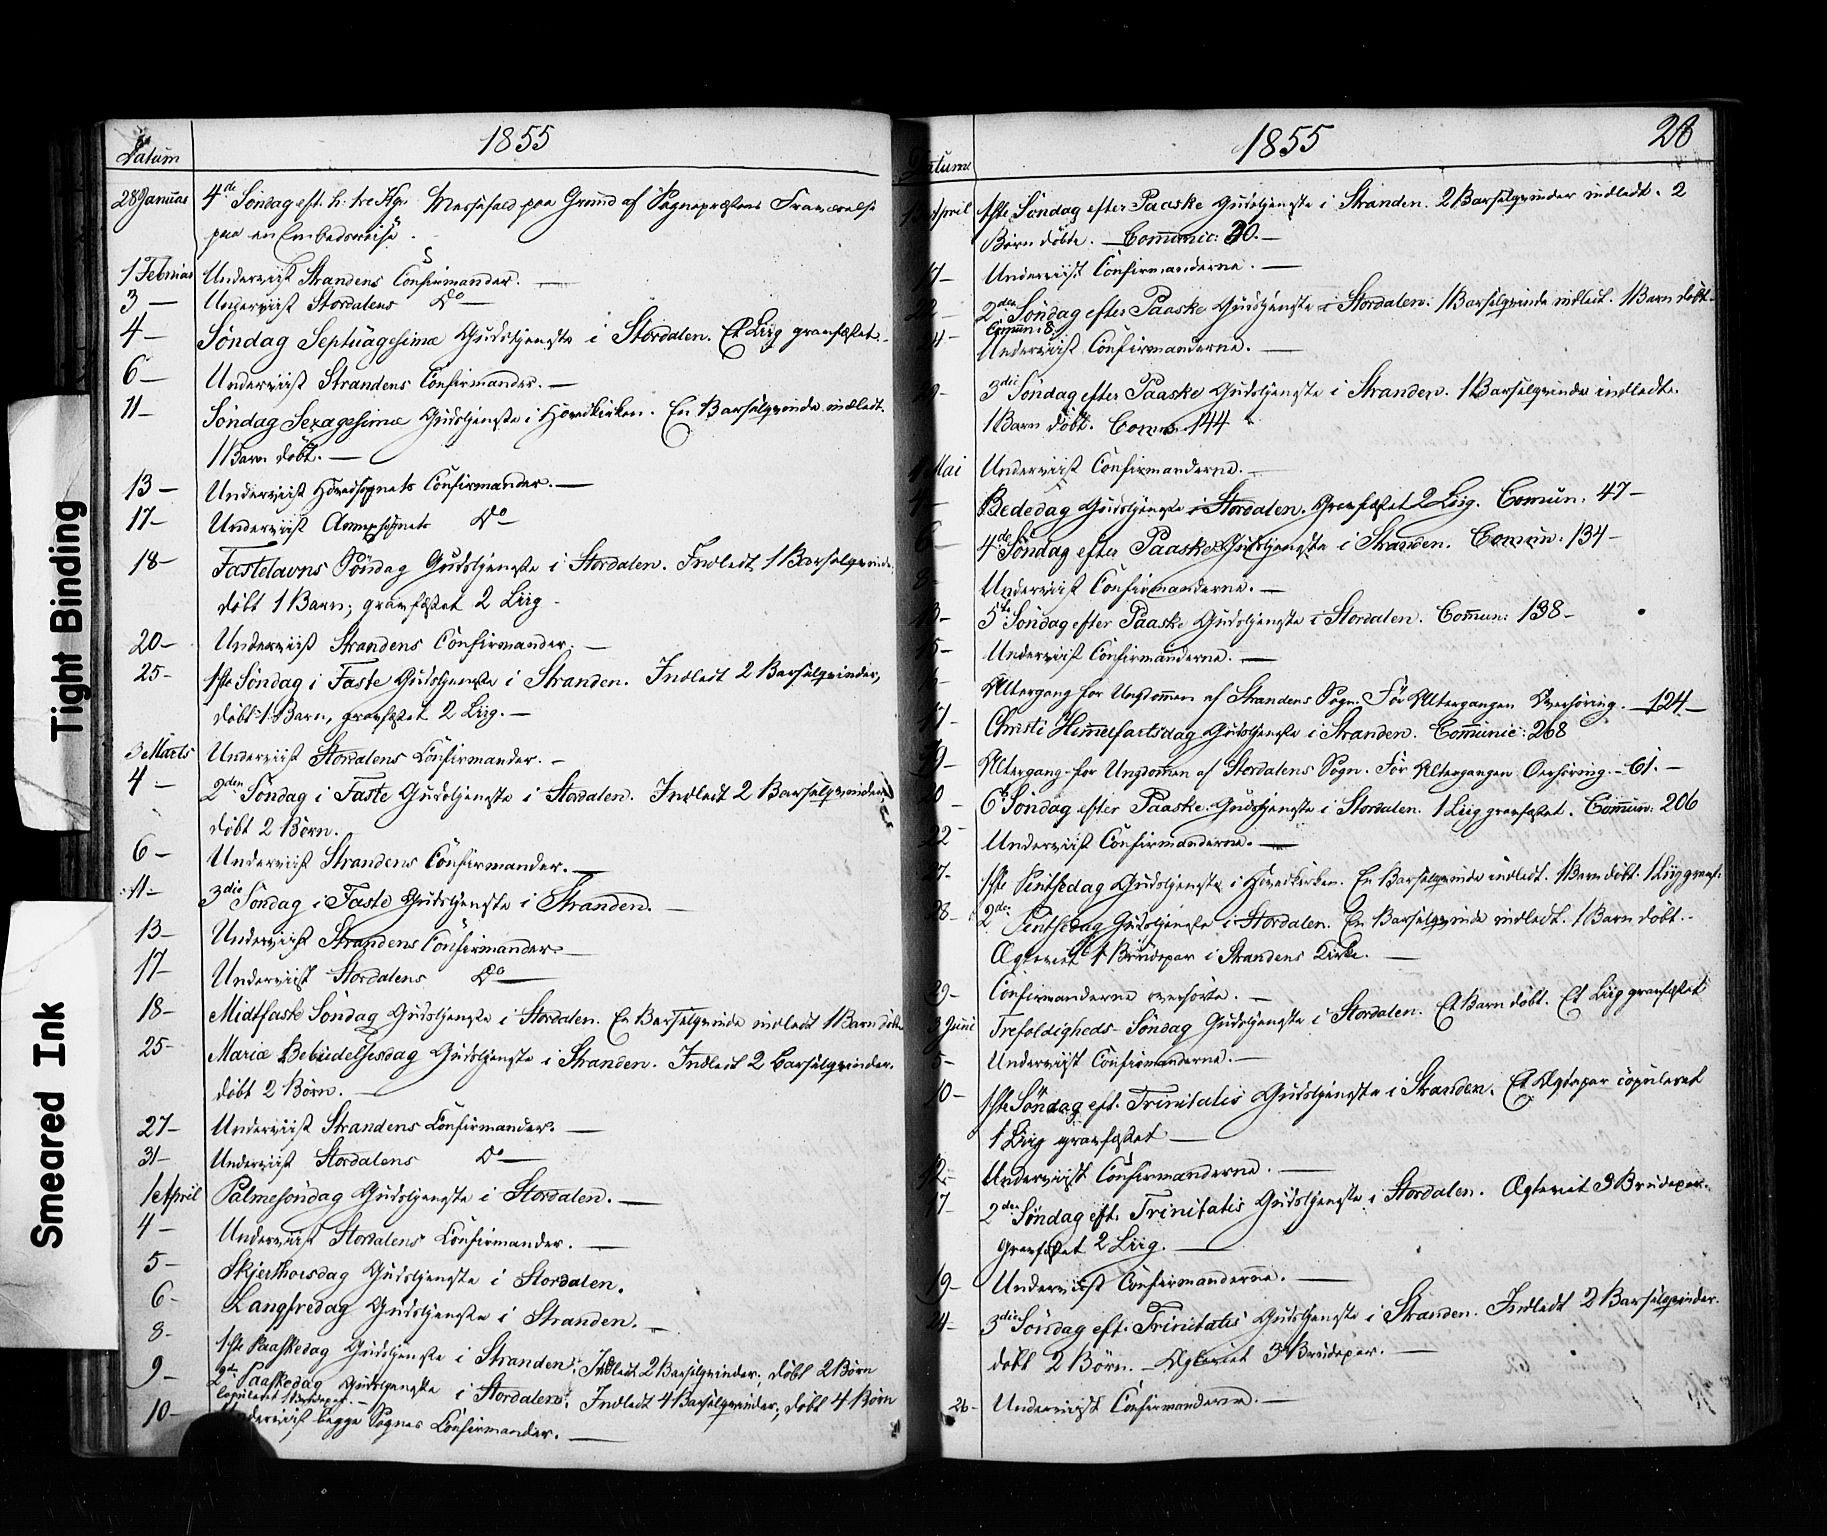 Tight Binding
Smeared Ink
Datum
1855
28 Januar 4de Søndag eft. h. tre Kgr. Messefald paa Grund af Sognepræstens Fraværelse
paa en Embedsreise.
1 Februar Underviist Strandens Confirmander. —
3 — Underviist Stordalens Do —
4 — Søndag Septuagesimæ Gudstjeneste i Stordalen. Et Liig gravfæstet.
6 — Underviist Strandens Confirmander. —
11 — Søndag Sexagesimæ Gudstjeneste i Hovedkirken. En Barselqvinde indledt.
1 Barn døbt. —
13 — Underviist Hovedsognets Confirmander. —
17 — Underviist Annexsognets Do —
18 — Fastelavns Søndag Gudstjeneste i Stordalen. Indledt 1 Barselqvinde,
døbt 1 Barn; gravfæstet 2 Liig —
20 — Underviist Strandens Confirmander. —
25 — 1ste Søndag i Faste Gudstjeneste i Stranden. Indledt 2 Barselqvinder,
døbt 1 Barn, gravfæstet 2 Liig. —
3 Marts Underviist Stordalens Confirmander. —
4 — 2den Søndag i Faste Gudstjeneste i Stordalen. Indledt 2 Barselqvinder,
døbt 2 Børn.
6 — Underviist Strandens Confirmander. —
11 — 3die Søndag i Faste Gudstjeneste i Stranden. —
13 — Underviist Strandens Confirmander. —
17 — Underviist Stordalens Do —
18 — Midtfaste Søndag Gudstjeneste i Stordalen. En Barselqvinde indledt 1 Barn døbt
25 — Mariæ Bebudelsesdag Gudstjeneste i Stranden. Indledt 2 Barselqvinder.
døbt 2 Børn. —
27 — Underviist Strandens Confirmander. —
31 — Underviist Stordalens Do —
1 April Palmesøndag Gudstjeneste i Stordalen. —
4 — Underviist Stordalens Confirmander. —
5 — Skjerthorsdag Gudstjeneste i Stordalen.
6 — Langfredag Gudstjeneste i Stranden. —
8 — 1ste Paaskedag Gudstjeneste i Stranden; Indledt 2 Barselqvinder, døbt 2 Børn
9 — 2den Paaskedag Gudstjeneste i Stordalen; Indledt 4 Barselqvinder; døbt 4 Børn
Copuleret 1 Brudepar. —
10 — Underviist begge Sognes Confirmander. —
Datum
1855
28
April 1ste Søndag efter Paaske Gudstjeneste i Stranden. 2 Barselqvinder indledt. 2
Børn døbte. — Communic: 30. —
17 — Underviist Confirmanderne. —
22 — 2den Søndag efter Paaske Gudstjeneste i Stordalen. 1 Barselqvinde indledt. 1 Barn døbt.
Comun: 8.
24 — Underviist Confirmanderne. —
29 — 3die Søndag efter Paaske Gudstjeneste i Stranden. 1 Barselqvinde indledt.
1 Barn døbt. Comm 144
Mai Underviist Confirmanderne. —
4 — Bededag Gudstjeneste i Stordalen. Gravfæstet 2 Liig. Comun: 47 —
6 — 4de Søndag efter Paaske Gudstjeneste i Stranden. Comun: 134 —
8 — Underviist Confirmanderne. —
13 — 5te Søndag efter Paaske Gudstjeneste i Stordalen. Commun: 138 —
15 — Underviist Confirmanderne. —
Altergang for Ungdommen af Strandens Sogn. Før Altergangen Overhøring. — 124 —
17 — Christi Himmelfartsdag Gudstjeneste i Stranden. Communic: 268
19 — Altergang for Ungdommen af Stordalens Sogn. Før Altergangen Overhøring. — 61. —
20 — 6te Søndag efter Paaske Gudstjeneste i Stordalen. 1 Liig gravfæstet. Commun: 206
22 — Underviist Confirmanderne. —
27 — 1ste Pentsedag Gudstjeneste i Hovedkirken. En Barselqvinde indledt. 1 Barn døbt. 1 Liig gravf.
28 — 2den Pentsedag Gudstjeneste i Stordalen. En Barselqvinde indledt. 1 Barn døbt. —
Ægteviet 1 Brudepar i Strandens Kirke. —
29 — Confirmanderne overhørte. —
3 Juni Trefoldigheds-Søndag Gudstjeneste i Stordalen. Et Barn døbt. Et Liig gravfæstet
5 — Underviist Confirmanderne. —
10 — 1ste Søndag eft. Trinitatis Gudstjeneste i Stranden. Et Ægtepar copuleret
1 Liig gravfæstet —
12 — Underviist Confirmanderne. —
17 — 2den Søndag eft. Trinitatis Gudstjeneste i Stordalen. Ægteviet 3 Brudepar.
Gravfæstet 2 Liig. —
19 — Underviist Confirmanderne. —
24 — 3die Søndag eft. Trinitatis Gudstjeneste i Stranden. Indledt 2 Barselqvinder.
døbt 2 Børn. — Ægteviet 3 Brudepar. —
26 — Underviist Confirmanderne. —